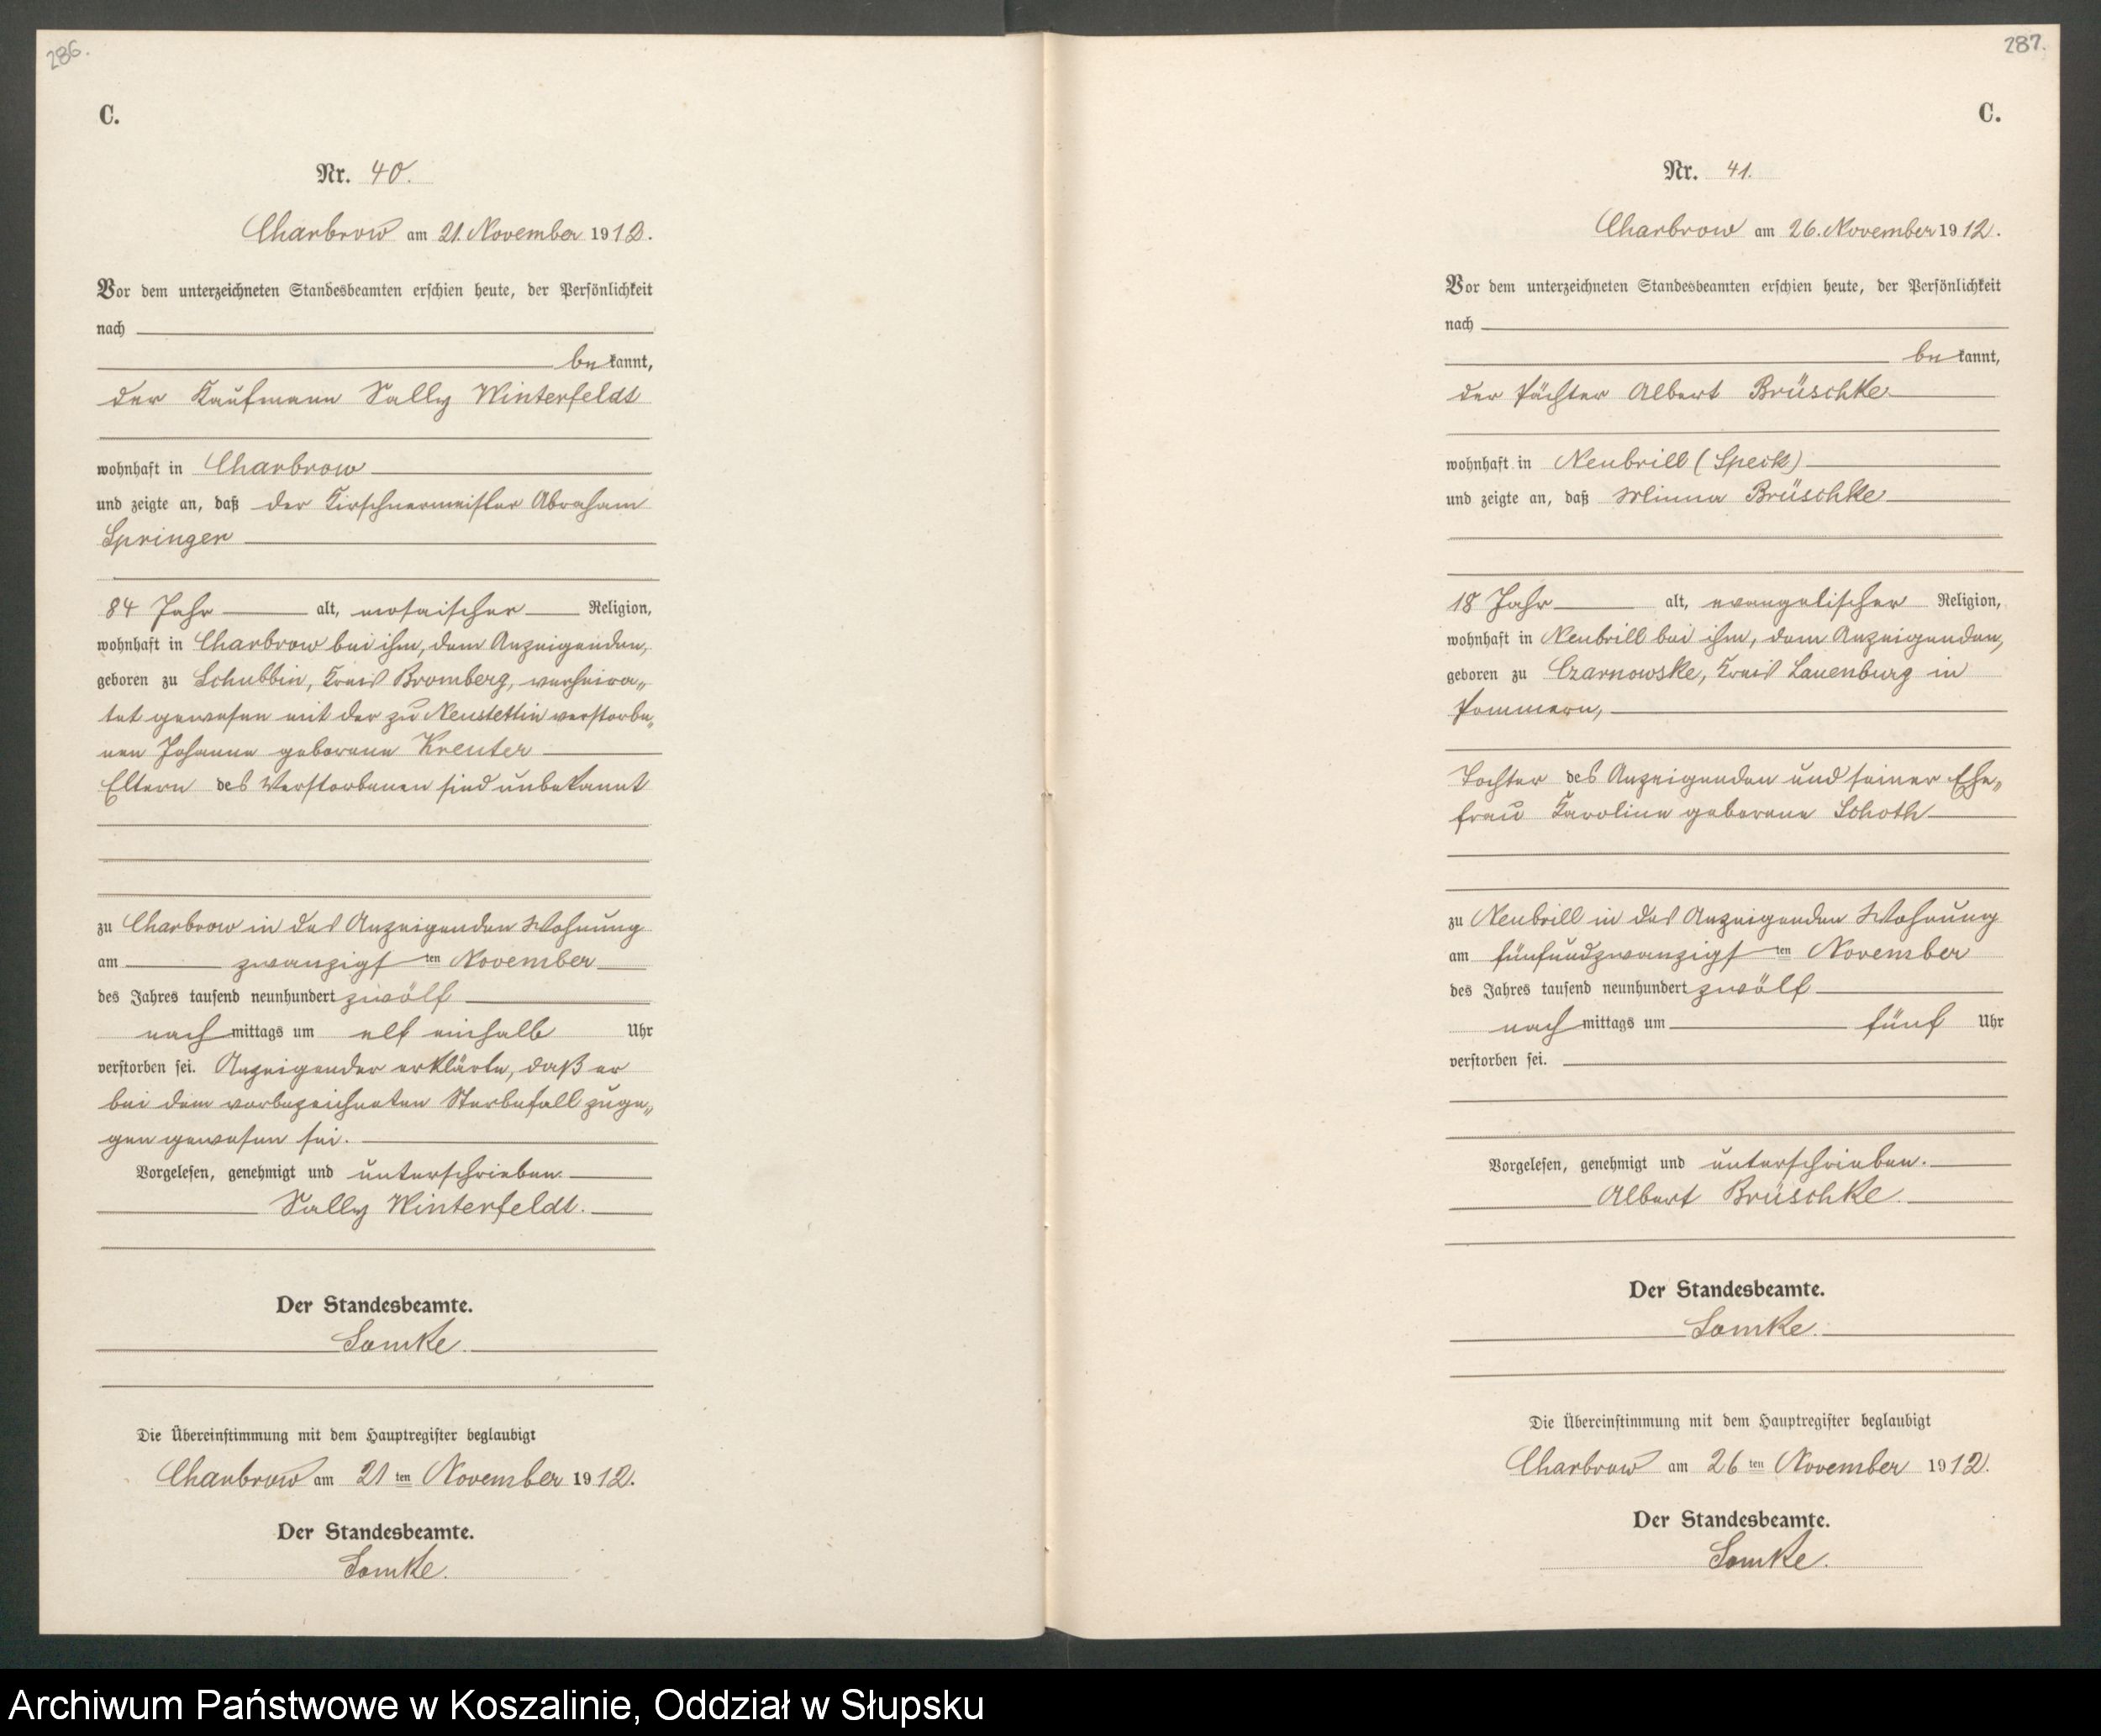 286.
C.
Nr. 40.
Charbrow am 21. November 1912.
Vor dem unterzeichneten Standesbeamten erschien heute, der Persönlichkeit
nach
bekannt,
der Kaufmann Sally Winterfeldt
wohnhaft in Charbrow
und zeigte an, daß der Kirschnermeister Abraham
Springer
84 Jahr alt, mosaischer Religion,
wohnhaft in Charbrow bei ihm, dem Anzeigenden,
geboren zu Schubbin, Kreis Bromberg, verheira„
tet gewesen mit der zu Neustettin verstorbe„
nen Johanne geborene Kreuter
Eltern des Verstorbenen sind unbekannt
zu Charbrow in des Anzeigenden Wohnung
am zwanzigsten November
des Jahres tausend neunhundert zwölf
nachmittags um elf einhalb Uhr
verstorben sei. Anzeigender erklärte, daß er
bei dem vorbezeichneten Sterbefall zuge„
gen gewesen sei.
Vorgelesen, genehmigt und unterschrieben.
Sally Winterfeldt.
Der Standesbeamte.
Somke.
Die Übereinstimmung mit dem Hauptregister beglaubigt
Charbrow am 21ten November 1912.
Der Standesbeamte.
Somke.
287.
C.
Nr. 41.
Charbrow am 26. November 1912.
Vor dem unterzeichneten Standesbeamten erschien heute, der Persönlichkeit
nach
bekannt,
der Pächter Albert Brüschke
wohnhaft in Neubrill (Speck)
und zeigte an, daß Minna Brüschke
18 Jahr alt, evangelischer Religion,
wohnhaft in Neubrill bei ihm, dem Anzeigenden,
geboren zu Czarnowske, Kreis Lauenburg in
Pommern,
Tochter des Anzeigenden und seiner Ehe„
frau Karoline geborene Schoth
zu Neubrill in des Anzeigenden Wohnung
am fünfundzwanzigsten November
des Jahres tausend neunhundert zwölf
nachmittags um fünf Uhr
verstorben sei.
Vorgelesen, genehmigt und unterschrieben.
Albert Brüschke.
Der Standesbeamte.
Somke.
Die Übereinstimmung mit dem Hauptregister beglaubigt
Charbrow am 26ten November 1912.
Der Standesbeamte.
Somke.
Archiwum Państwowe w Koszalinie, Oddział w Słupsku